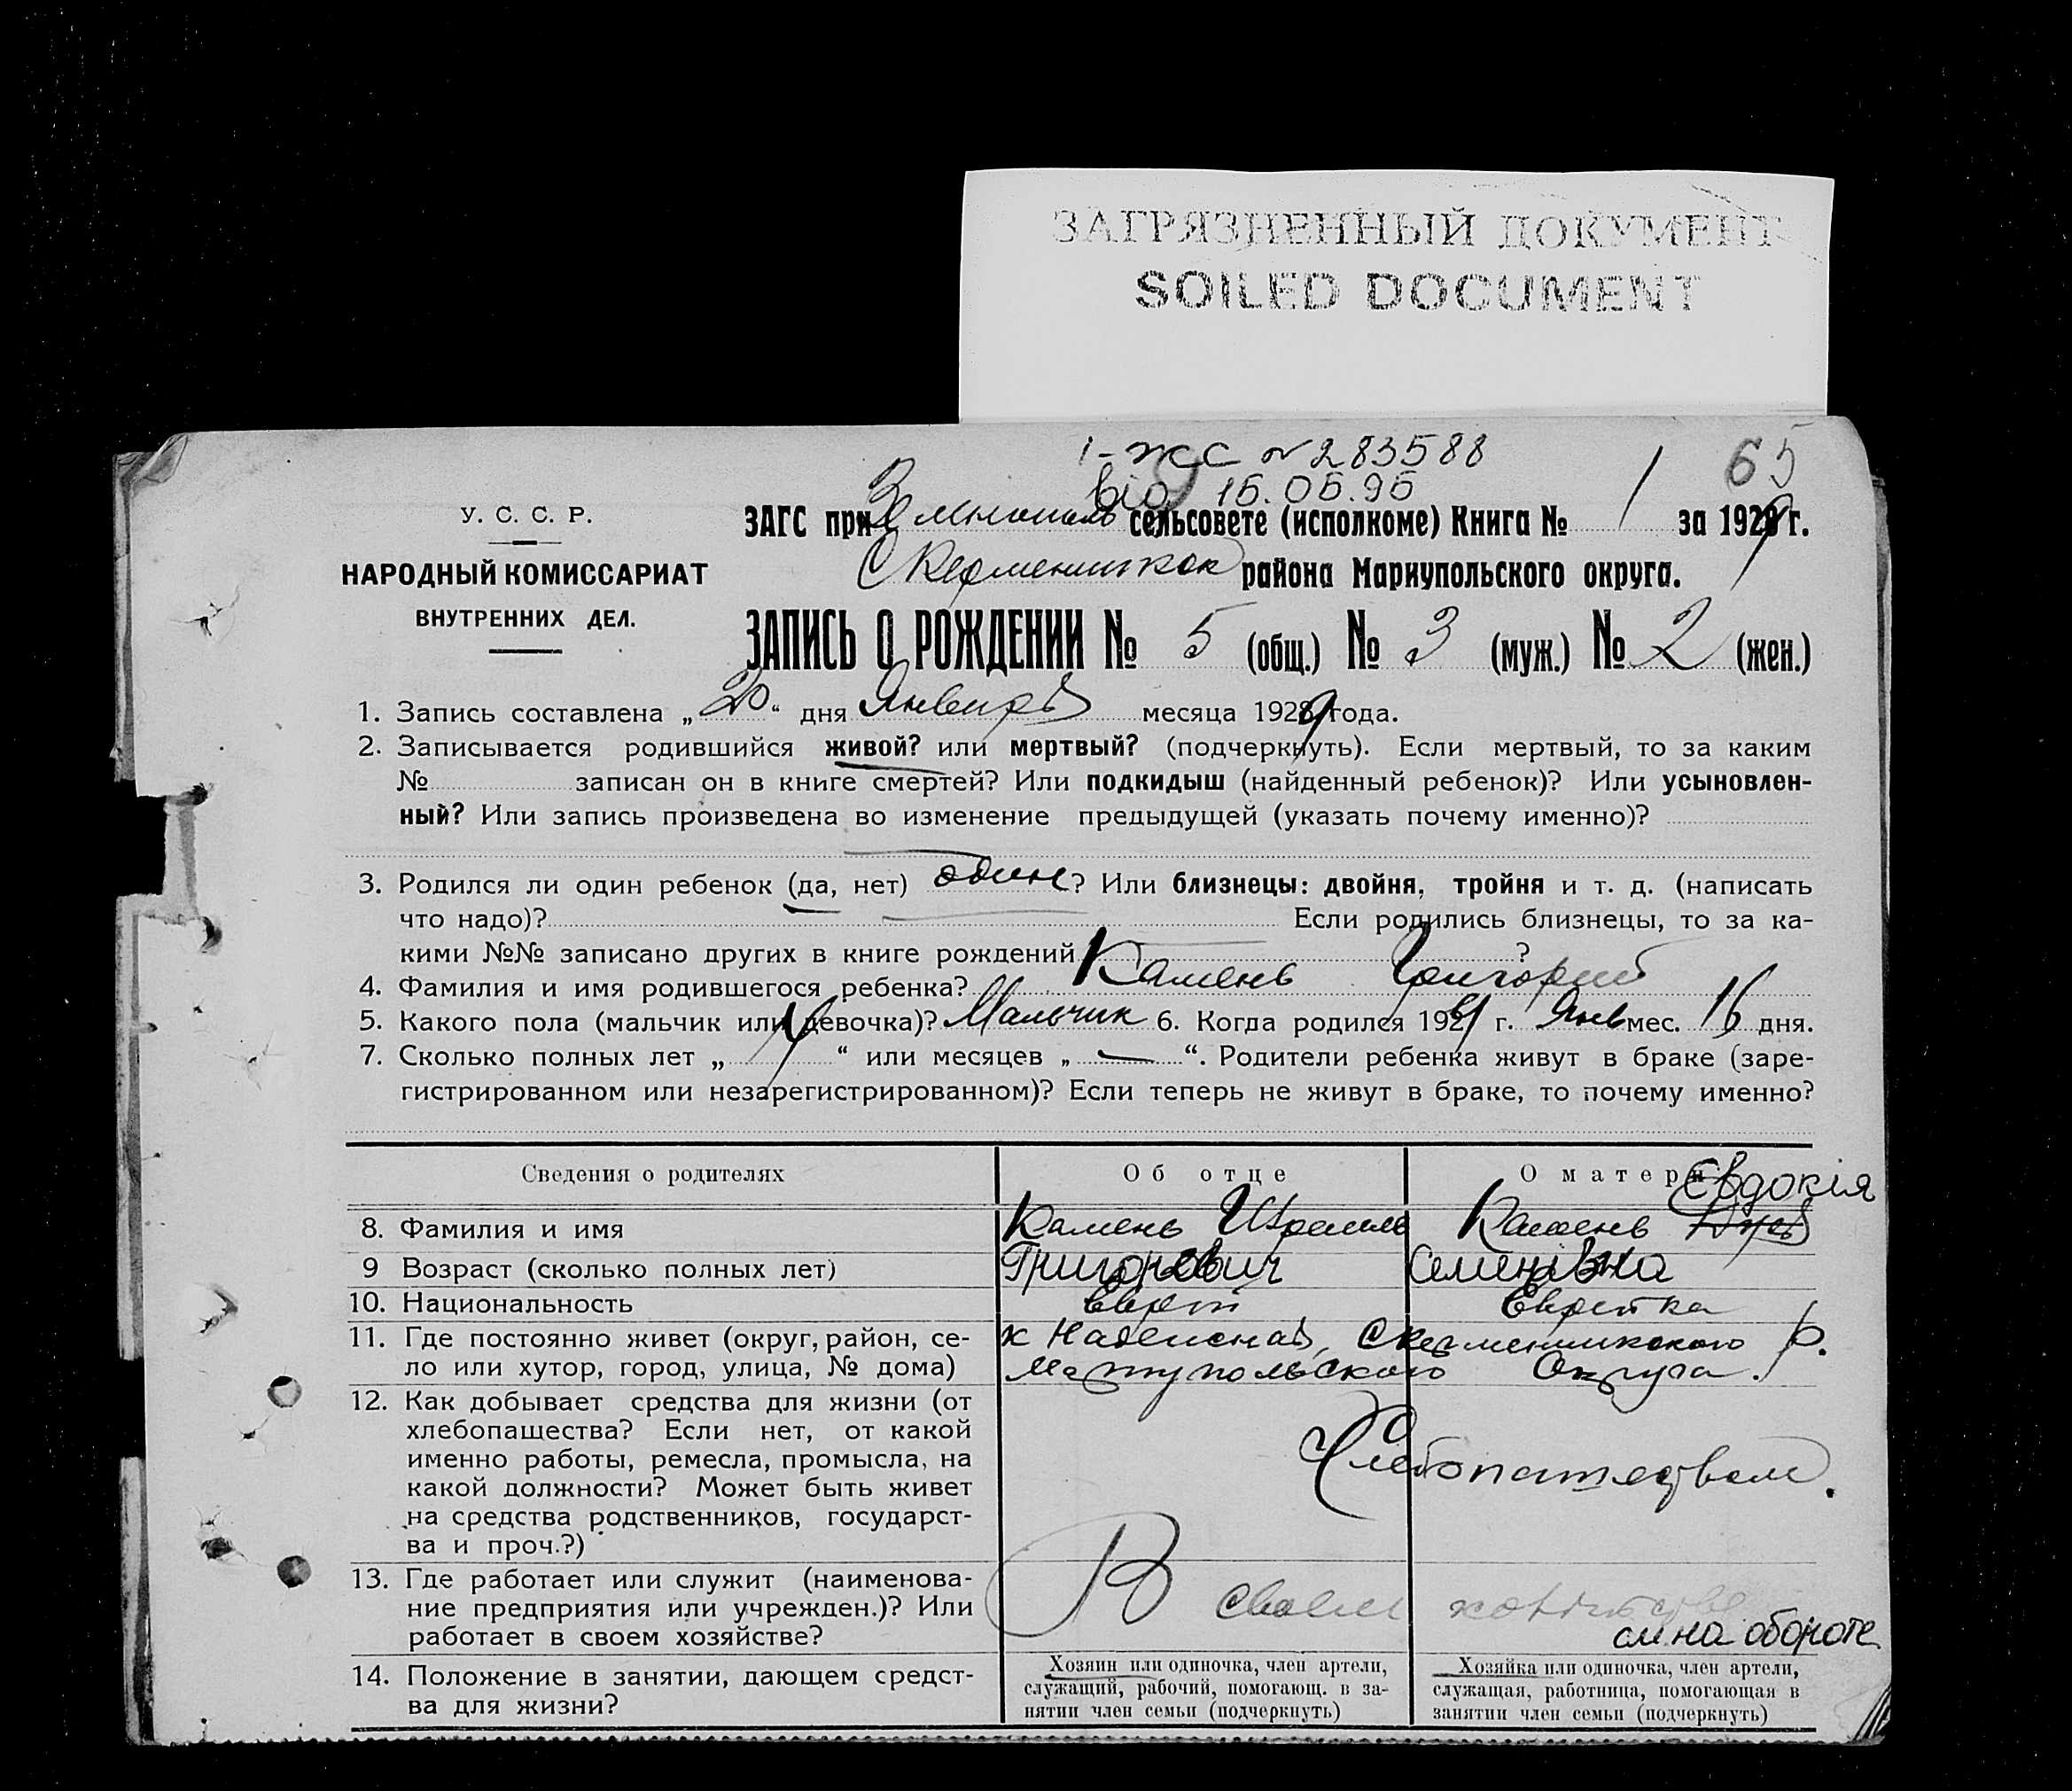 ЗАГРЯЗНЕННЫЙ ДОКУМЕНТ
SOILED DOCUMENT
1-ЖС № 283588 65
від 15.05.95
У. С. С. Р.
НАРОДНЫЙ КОМИССАРИАТ
ВНУТРЕННИХ ДЕЛ.
ЗАГС при сельсовете (исполкоме) Книга № 1 за 1929 г.
района Мариупольского округа.
ЗАПИСЬ О РОЖДЕНИИ № 5 (общ.) № 3 (муж.) № 2 (жен.)
1. Запись составлена „ 20 “ дня Января месяца 1929 года.
2. Записывается родившийся живой? или мертвый? (подчеркнуть). Если мертвый, то за каким
№ записан он в книге смертей? Или подкидыш (найденный ребенок)? Или усыновлен-
ный? Или запись произведена во изменение предыдущей (указать почему именно)?
3. Родился ли один ребенок (да, нет) один? Или близнецы: двойня, тройня и т. д. (написать
что надо)? Если родились близнецы, то за ка-
кими №№ записано других в книге рождений ?
4. Фамилия и имя родившегося ребенка? Камень Григорий
5. Какого пола (мальчик или девочка)? Мальчик 6. Когда родился 1929 г. Янв мес. 16 дня.
7. Сколько полных лет „ “ или месяцев „ — “. Родители ребенка живут в браке (заре-
гистрированном или незарегистрированном)? Если теперь не живут в браке, то почему именно?
Сведения о родителях Об отце О матери
Євдокія
8. Фамилия и имя Камень Израиль Камень
9 Возраст (сколько полных лет) Григорович Семенівна
10. Национальность Еврей Еврейка
11. Где постоянно живет (округ, район, се-
ло или хутор, город, улица, № дома)
к Надежная, р.
Мариупольского Округа.
12. Как добывает средства для жизни (от
хлебопащества? Если нет, от какой
именно работы, ремесла, промысла, на
какой должности? Может быть живет
на средства родственников, государст-
ва и проч.?)
Хлебопашеством.
13. Где работает или служит (наименова-
ние предприятия или учрежден.)? Или
работает в своем хозяйстве?
В своем хозяйстве
см. на обороте
14. Положение в занятии, дающем средст-
ва для жизни?
Хозяин или одиночка, член артели,
служащий, рабочий, помогающ. в за-
нятии член семьи (подчеркнуть)
Хозяйка или одиночка, член артели,
служащая, работница, помогающая в
занятии член семьи (подчеркнуть)